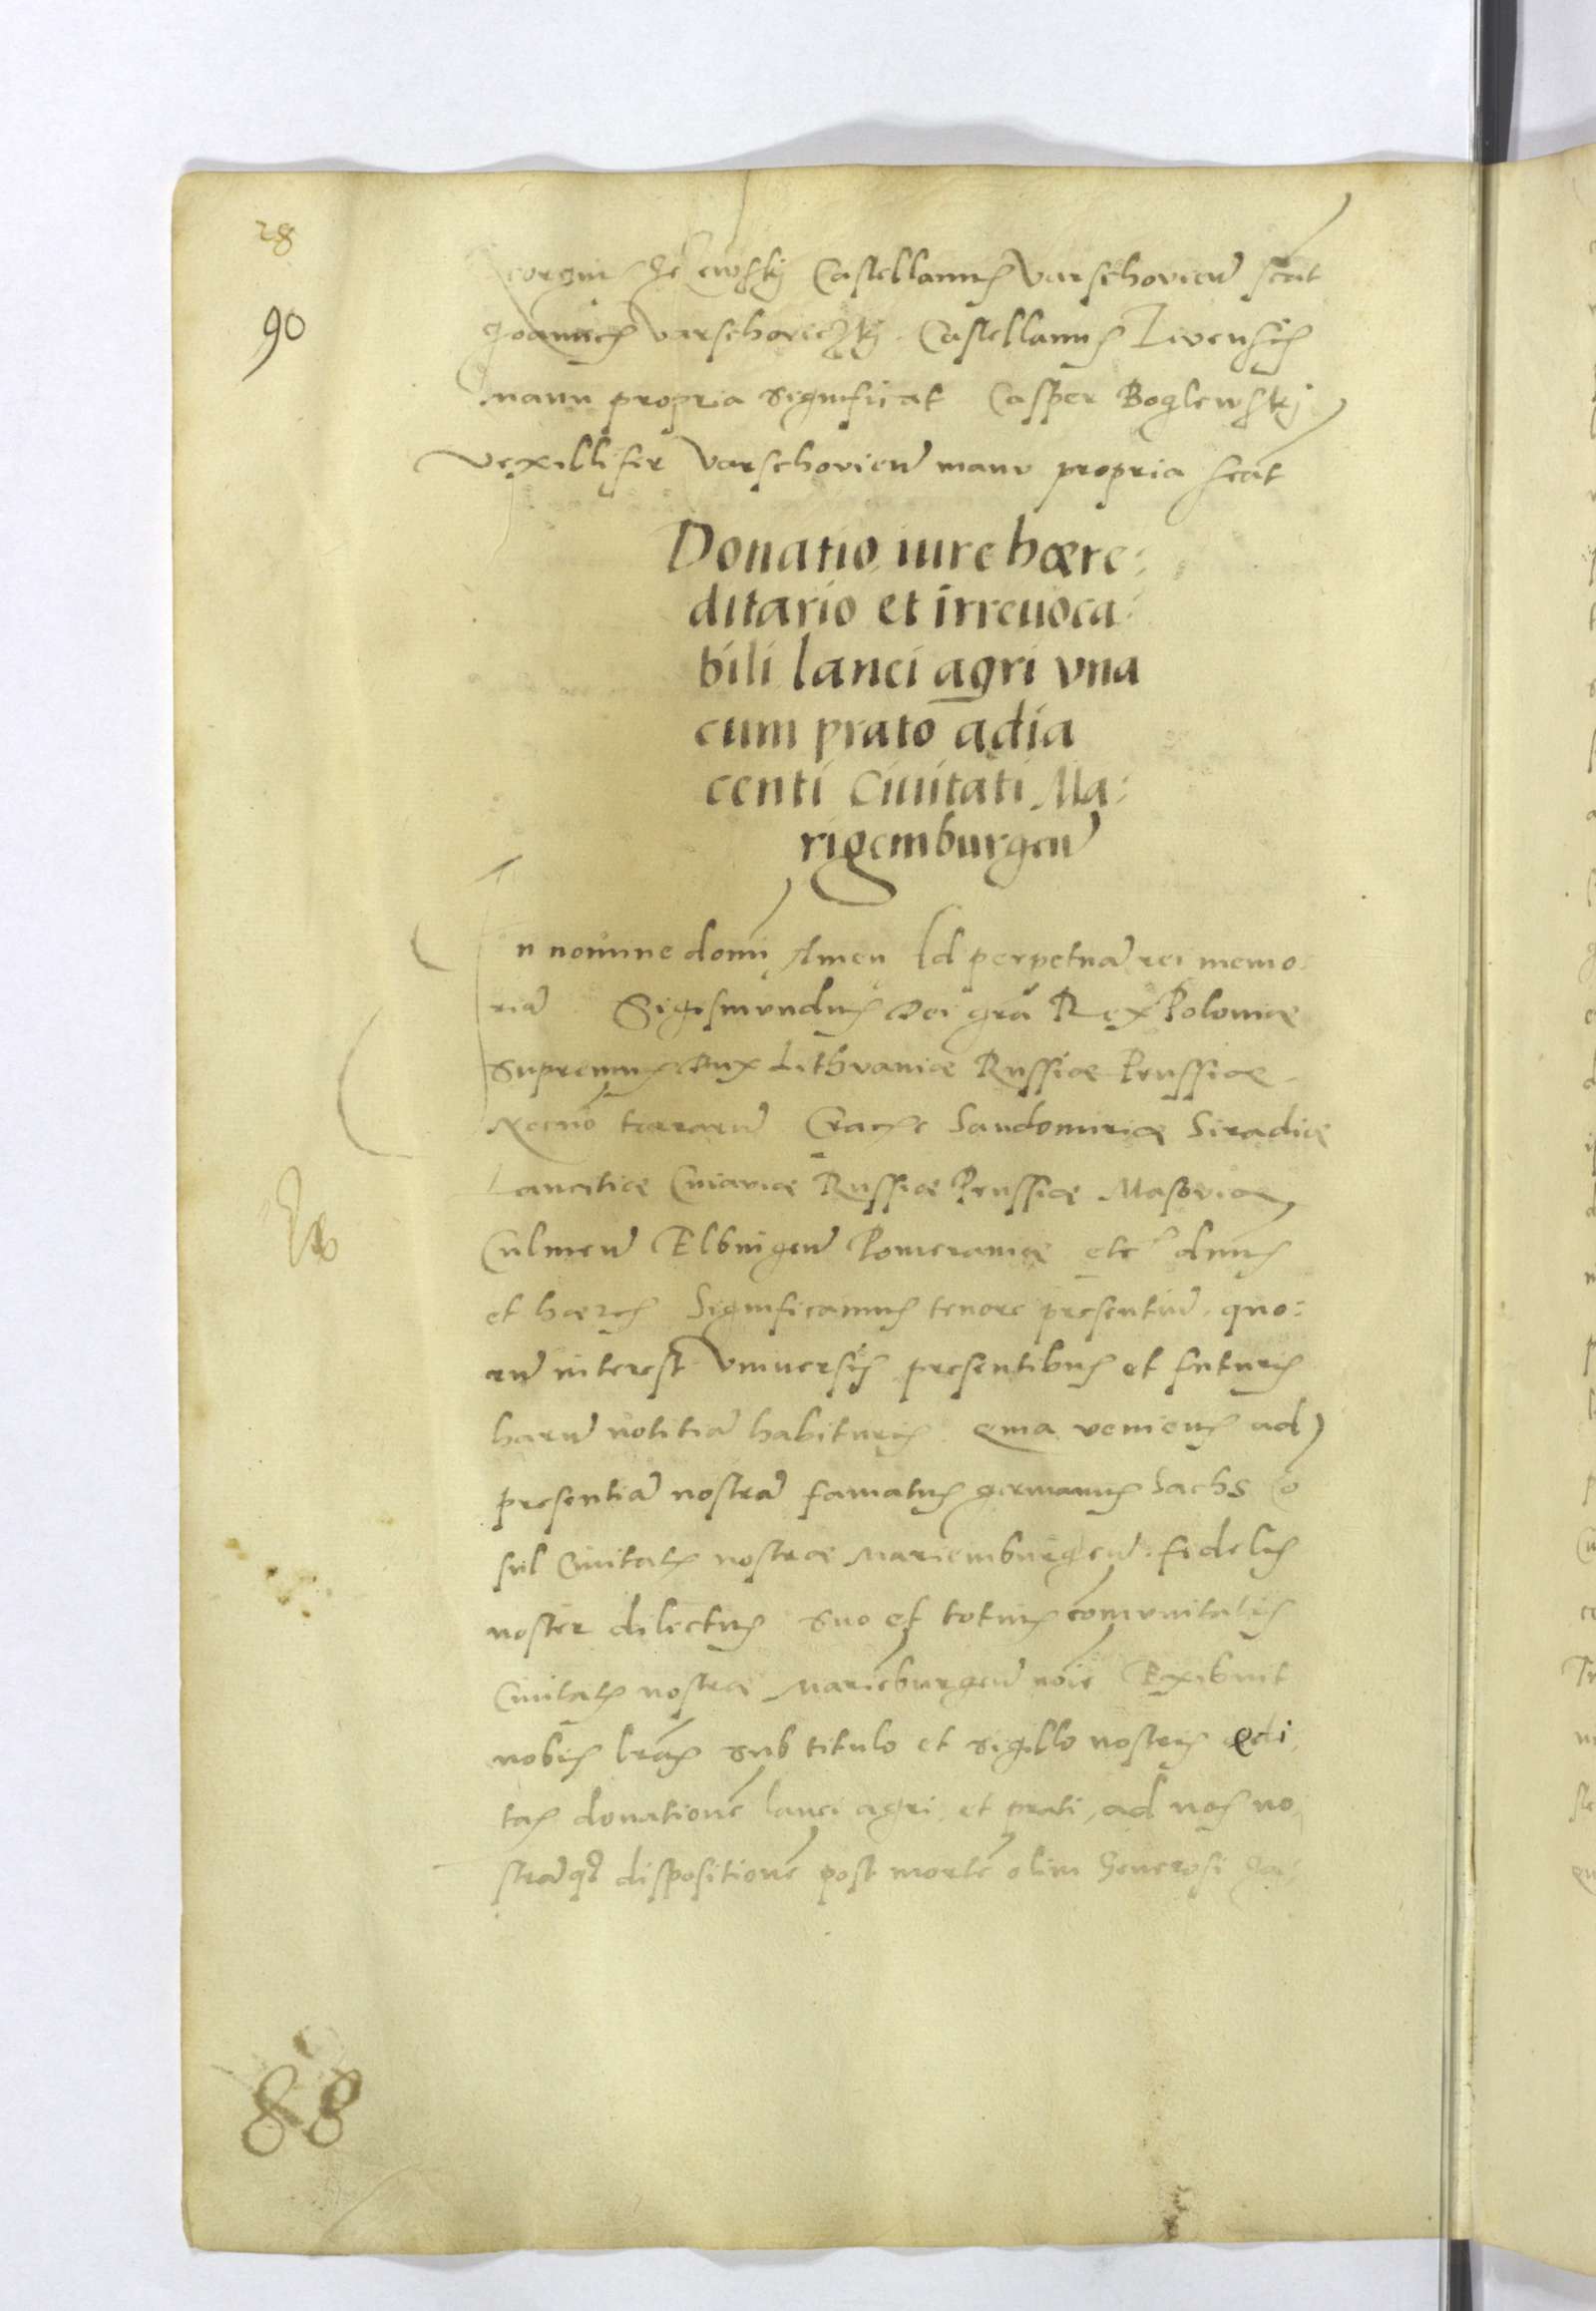 28
90
Georgius Castellanus Varschovien scat
Joannes Varschoviczkj Castellanus Livensis
manu propria significat Casper Boglewskj
Vexillifer Varschovien manu propria scat
Donatio iure hære:
ditario et irreuoca:
bili lanei agri vna
cum prato adia
centi Ciuitati Ma:
rigemburgen
In nomine domi Amen Ad perpetua rei memo:
ria Sigismundus Dei gra Rex Poloniæ
Supremus Dux Lithvaniæ Russiæ Prussiæ
Necno terraru Cracoe Sandomiriæ Siradiæ
Lancitiæ Cuiaviæ Russiæ Prussiæ Masoviæ
Culmen Elbingen Pomeraniæ etc dnus
et hæres Significamus tenore presentiu quo:
ru interest Vniversis presentibus et futuris
haru notitia habituris Quia veniens ad
presentia nostra famatus germanus Sachs Co
sul Ciuitatis nostræ Mariemburgen fidelis
noster dilectus suo et totius comunitatis
Ciuitatis nostræ Marieburgen noie Exibuit
nobis lras sub titulo et sigillo nostris edi
tas donatione lanei agri et prati ad nos no
straqz dispositione post morte olim Generosi
88